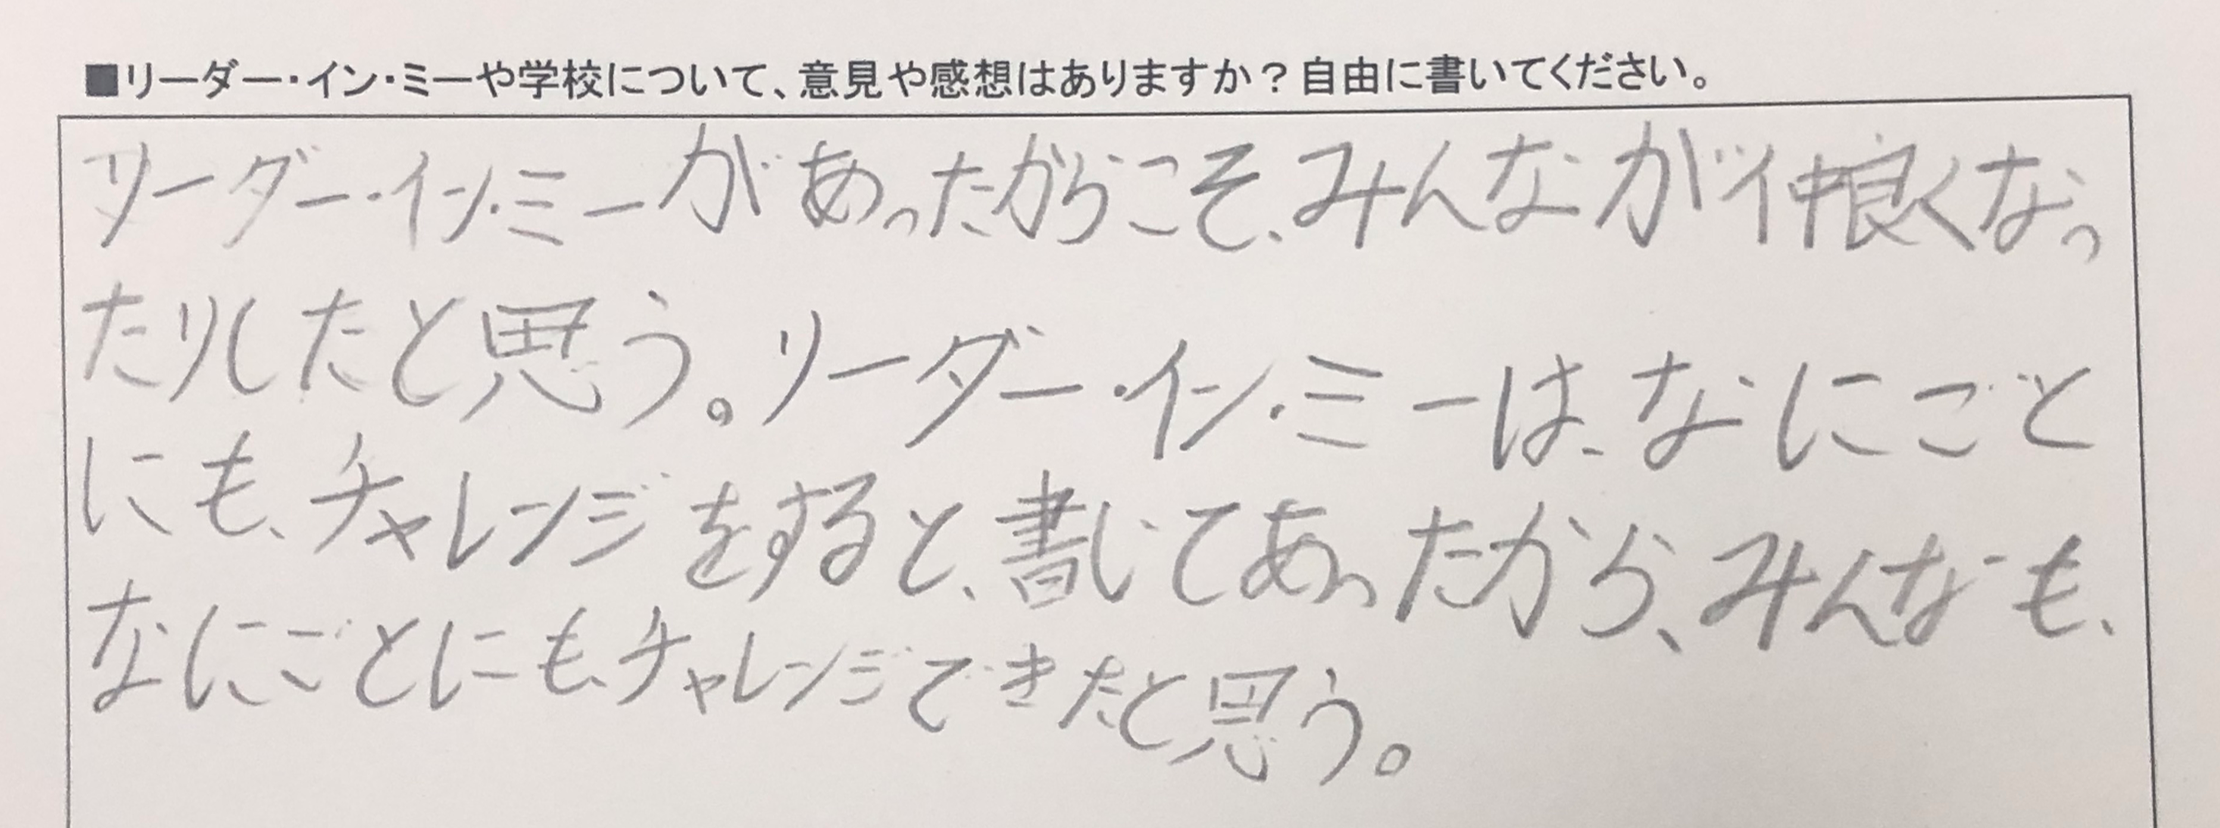 ■リーダー・イン・ミーや学校について、意見や感想はありますか？自由に書いてください。
リーダー・イン・ミーがあったからこそ、みんなが仲良くなっ
たりしたと思う。リーダー・イン・ミーは、なにごと
にも、チャレンジをすると、書いてあったから、みんなも、
なにごとにも、チャレンジできたと思う。